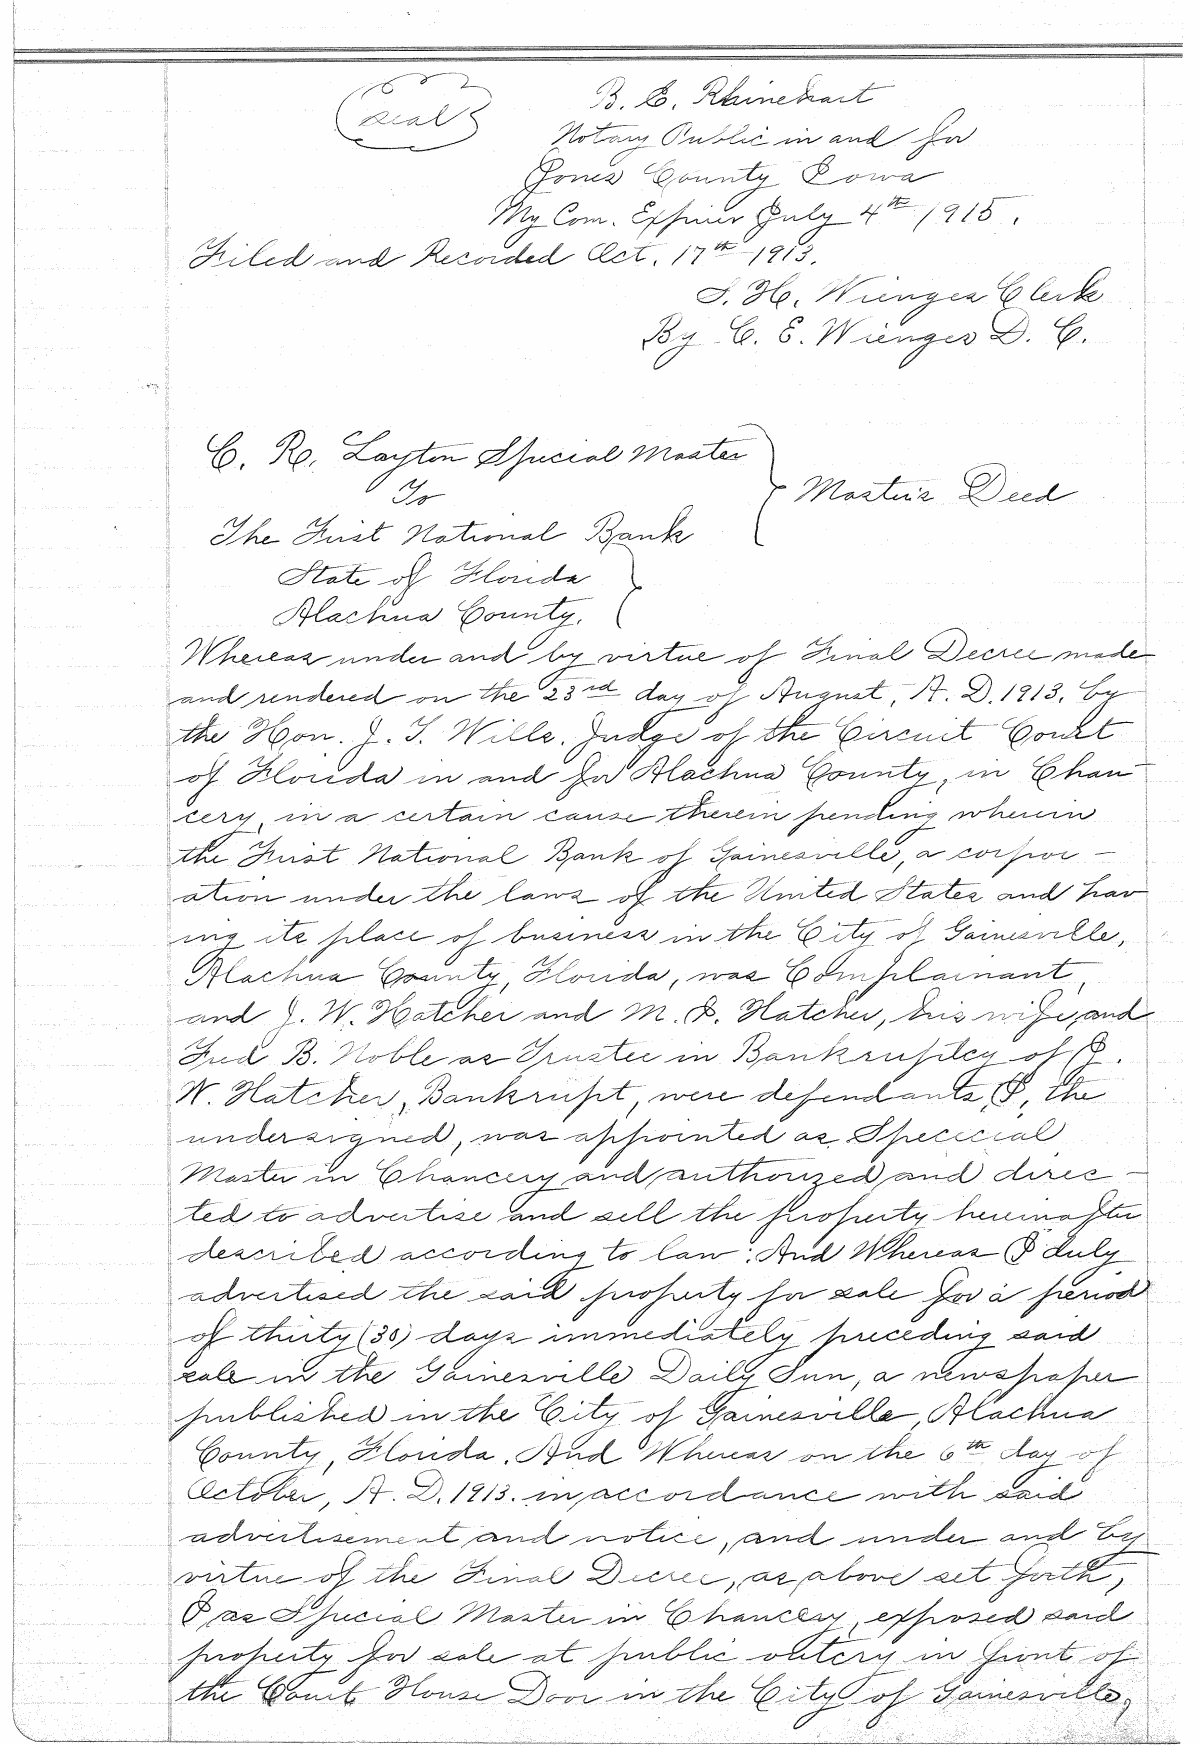 seal
B. E. Rhinehart
Notary Public in and for
Jones County Iowa
My Com. Expires July 4th 1915.
Filed and Recorded Oct. 17th 1913.
S. H. Wienges Clerk
By C. E. Wienges D. C.
C. R. Layton Special Master
To
Master's Deed
The First National Bank
State of Florida
Alachua County.
Whereas under and by virtue of Final Decree made
and rendered on the 23rd day of August, A. D. 1913, by
the Hon. J. T. Wills. Judge of the Circuit Court
of Florida in and for Alachua County, in Chan-
cery, in a certain cause therein pending wherein
the First National Bank of Gainesville, a corpor-
ation under the laws of the United States and hav
ing its place of business in the City of Gainesville,
Alachua County, Florida, was Complainant,
and J. W. Hatcher and M. I. Hatcher, his wife, and
Fred B. Noble as Trustee in Bankruptcy of J.
W. Hatcher, Bankrupt, were defendants, I, the
undersigned, was appointed as Specicial
Master in Chancery and authorized and direc-
ted to advertise and sell the property hereinafter
described according to law: And Whereas I duly
advertised the said property for sale for a period
of thirty (30) days immediately preceding said
sale in the Gainesville Daily Sun, a newspaper
published in the City of Gainesville, Alachua
County, Florida. And Whereas on the 6th day of
October, A. D. 1913. in accordance with said
advertisement and notice, and under and by
virtue of the Final Decree, as above set forth,
I as Special Master in Chancery, exposed said
property for sale at public outcry in front of
the Court House Door in the City of Gainesville,